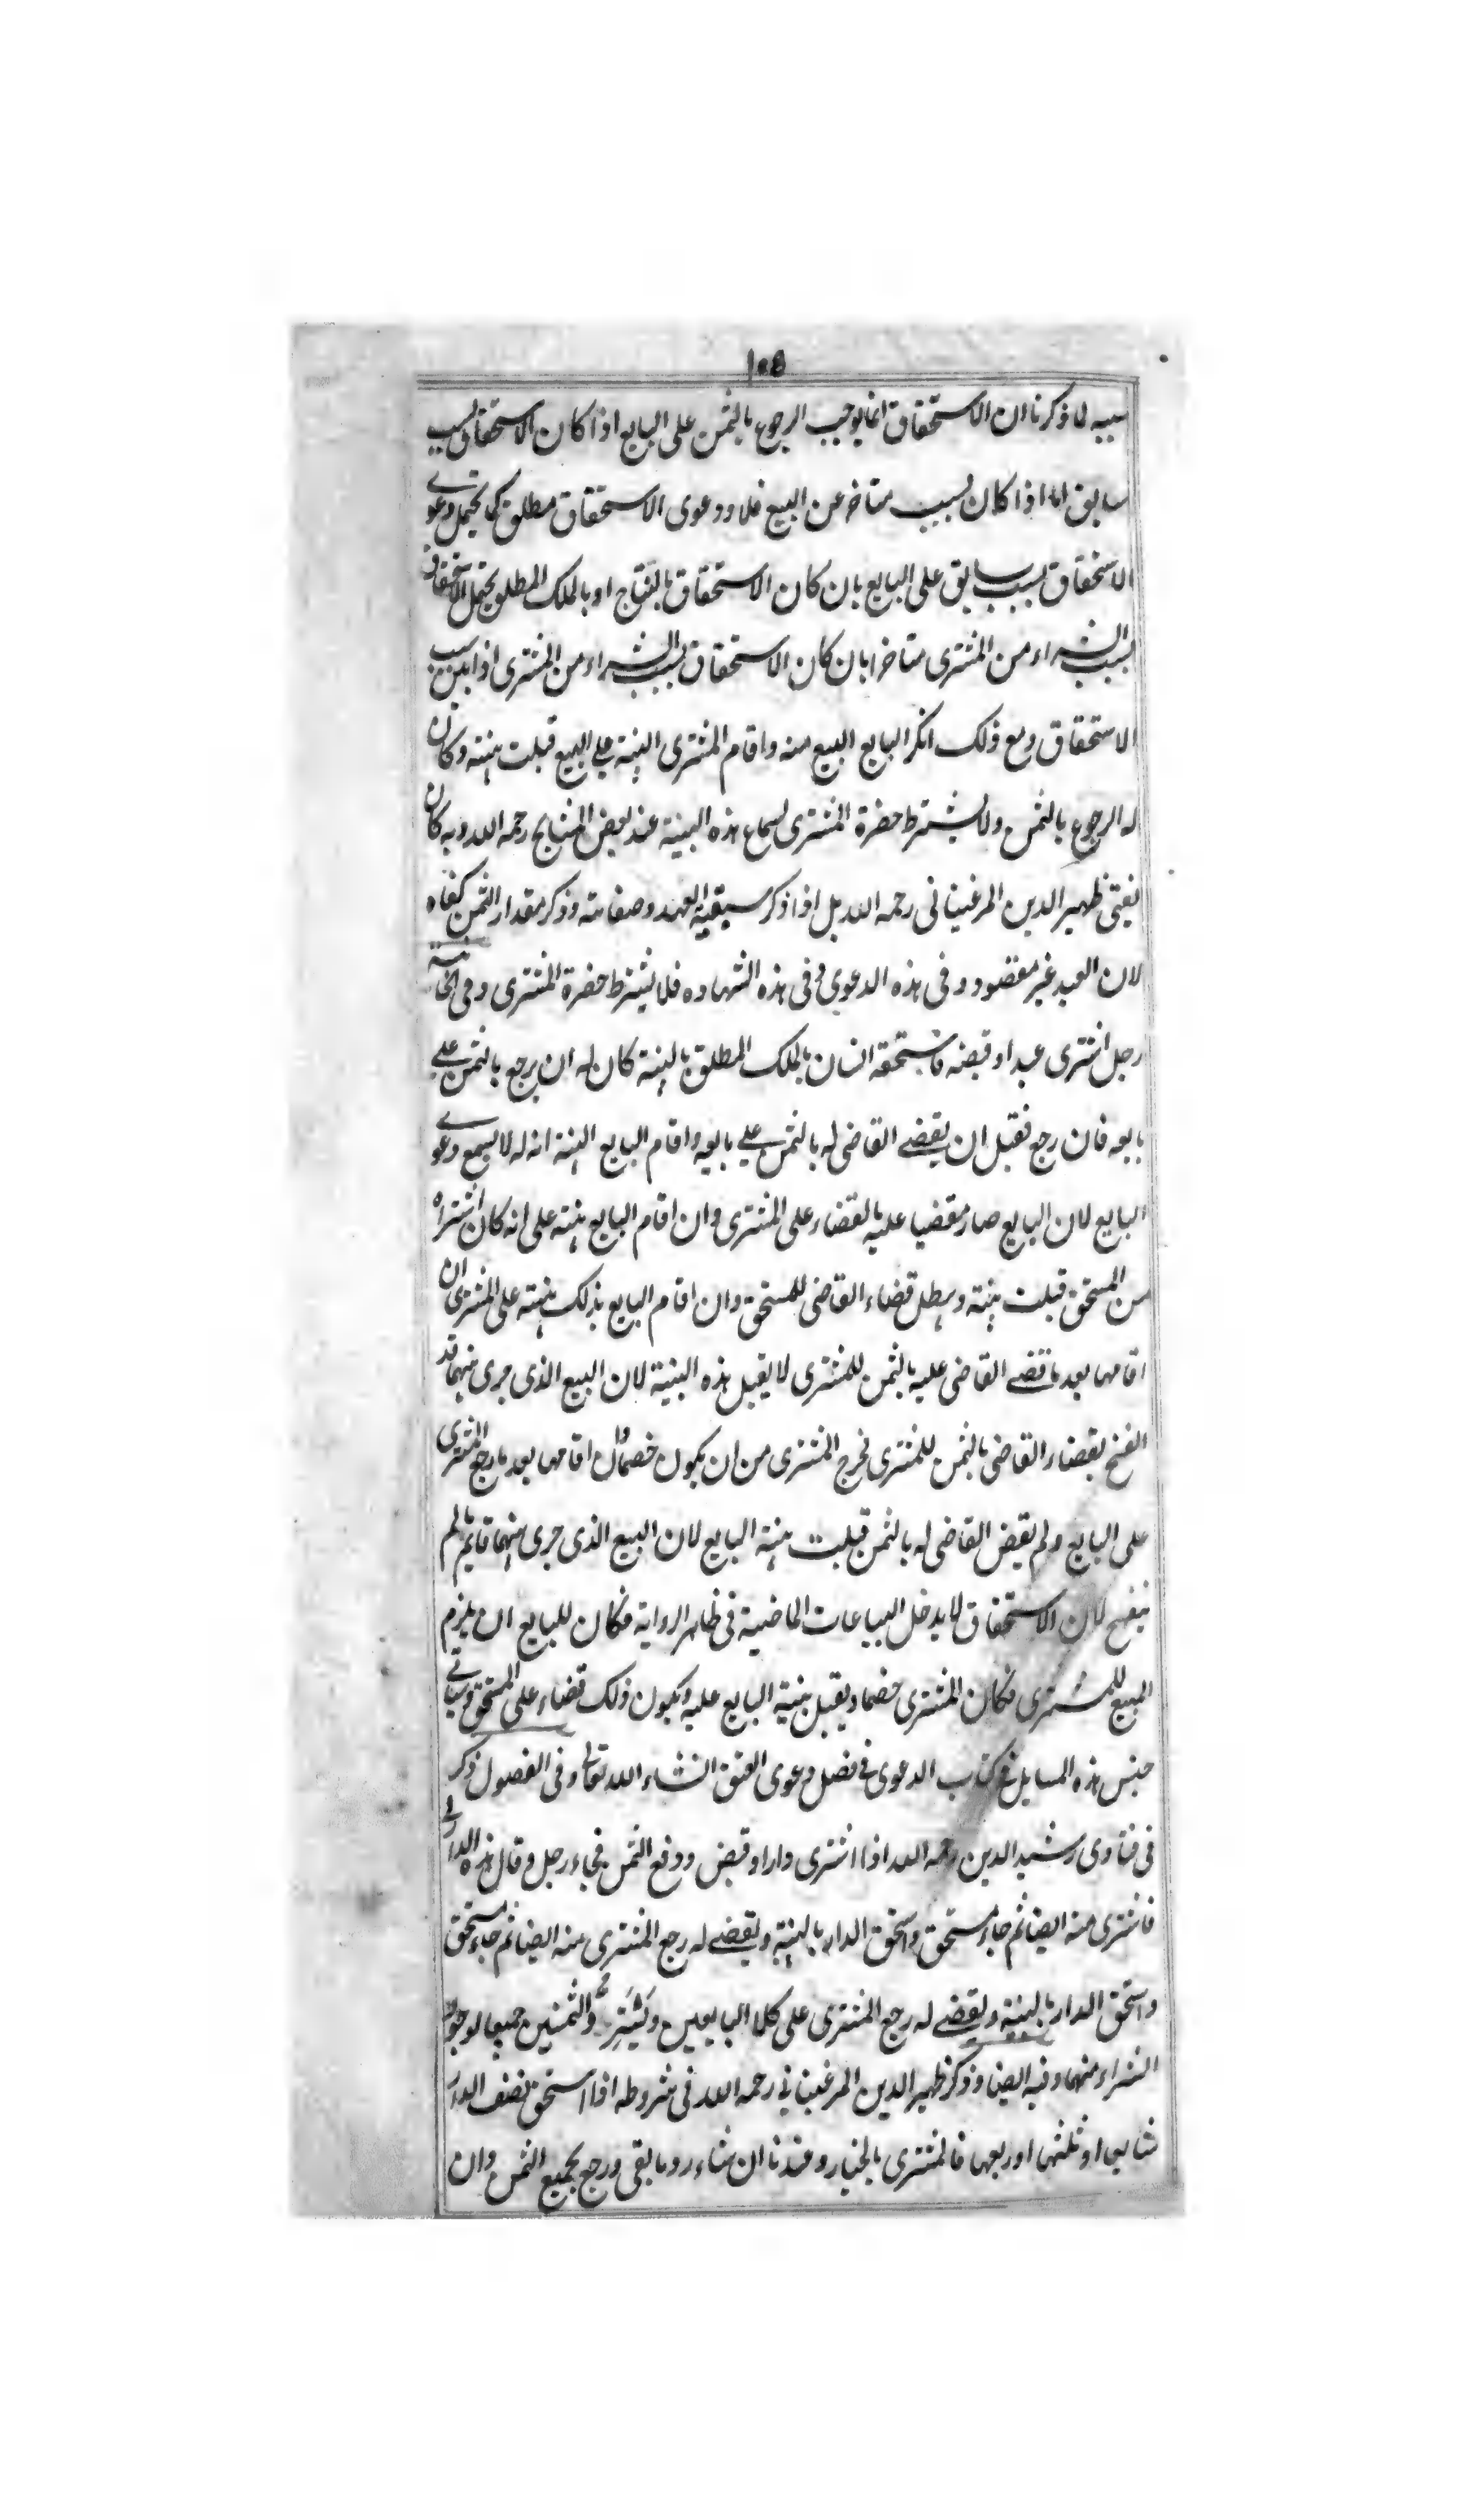 ١٠٥
سببه لما ذكرنا ان الاستحقاق انما يوجب الرجوع بالثمن على البايع اذا كان الاستحقاق بسبب
سابق اما اذا كان بسبب متاخر عن البيع فلا ودعوى الاستحقاق مطلق كما يحتمل دعوى
الاستحقاق بسبب سابق على البايع بان كان الاستحقاق بالنتاج او بالملك المطلق يحتمل الاستحقاق
بسبب الشراء من المشترى متاخرا بان كان الاستحقاق بسبب الشراء من المشترى اذا بين سبب
الاستحقاق ومع ذلك انكر البايع البيع منه واقام المشترى البينة على البيع قبلت بينته وكان
له الرجوع بالثمن ولا يشترط حضرة المشترى لسماع هذه البينة عند بعض المشايخ رحمه الله وبه كان
يفتى ظهير الدين المرغينانى رحمه الله بل اذا ذكر العبد وصفاته وذكر مقدار الثمن كفاه
لان العبد غير مقصود فى هذه الدعوى وفى هذه الشهاده فلا يشترط حضرة المشترى وفى الخانية
رجل اشترى عبدا وقبضه فاستحقه انسان بالملك المطلق بالبينة كان له ان يرجع بالثمن على
بايعه فان رجع فقبل ان يقضے القاضى له بالثمن على بايعه واقام البايع البينة انه له لا يسمع دعوى
البايع لان البايع صار مقضيا عليه بالقضاء على المشترى وان اقام البايع بينته على انه كان اشتراه
من المستحق قبلت بينته وبطل قضاء القاضى للمستحق وان اقام البايع بذلك بينته على المشترى ان
اقامها بعد ما قضے القاضى عليه بالثمن للمشترى لا يقبل هذه البينة لان البيع الذى جرى بينهما قد
انفسخ بقضاء القاضى بالثمن للمشترى فخرج المشترى من ان يكون خصما وان اقامها بعد ما رجع المشترى
على البايع ولم يقض القاضى له بالثمن قبلت بينة البايع لان البيع الذى جرى بينهما قايم ما لم
ينفسخ لان الاستحقاق لا يدخل البياعات الماضية فى ظاهر الرواية فكان للبايع ان يلزم
المبيع للمشترى فكان المشترى خصما ويقبل بينة البايع عليه ويكون ذلك قضاء على المستحق وسياتى
جنس هذه المسايل فى كتاب الدعوى فى فصل دعوى العتق انشاء الله تعالى وفى الفصول ذكر
فى فتاوى رشيد الدين رحمه الله اذا اشترى دارا وقبض ودفع الثمن فجاء رجل وقال هذه الدار لى
فاشترى منه ايضا ثم جاء مستحق واستحق الدار بالبينة ويقضے له رجع المشترى منه ايضا ثم جاء مستحق
واستحق الدار بالبينة ويقضے له رجع المشترى على كلا البايعين والثمنين جميعا لوجود
الشراء منهما وفيه ايضا وذكر ظهير الدين المرغينانى رحمه الله فى شروطه اذا استحق نصف الدار
شايعا او ثلثها او ربعها فالمشترى بالخيار عندنا ان شاء رد ما بقى ورجع بجميع الثمن وان